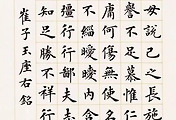 毋說己之長施
譽不足慕惟仁
庸何傷無使名
不緇曖曖內含
彊行行鄙夫志
知足勝不祥行
崔子玉座右銘